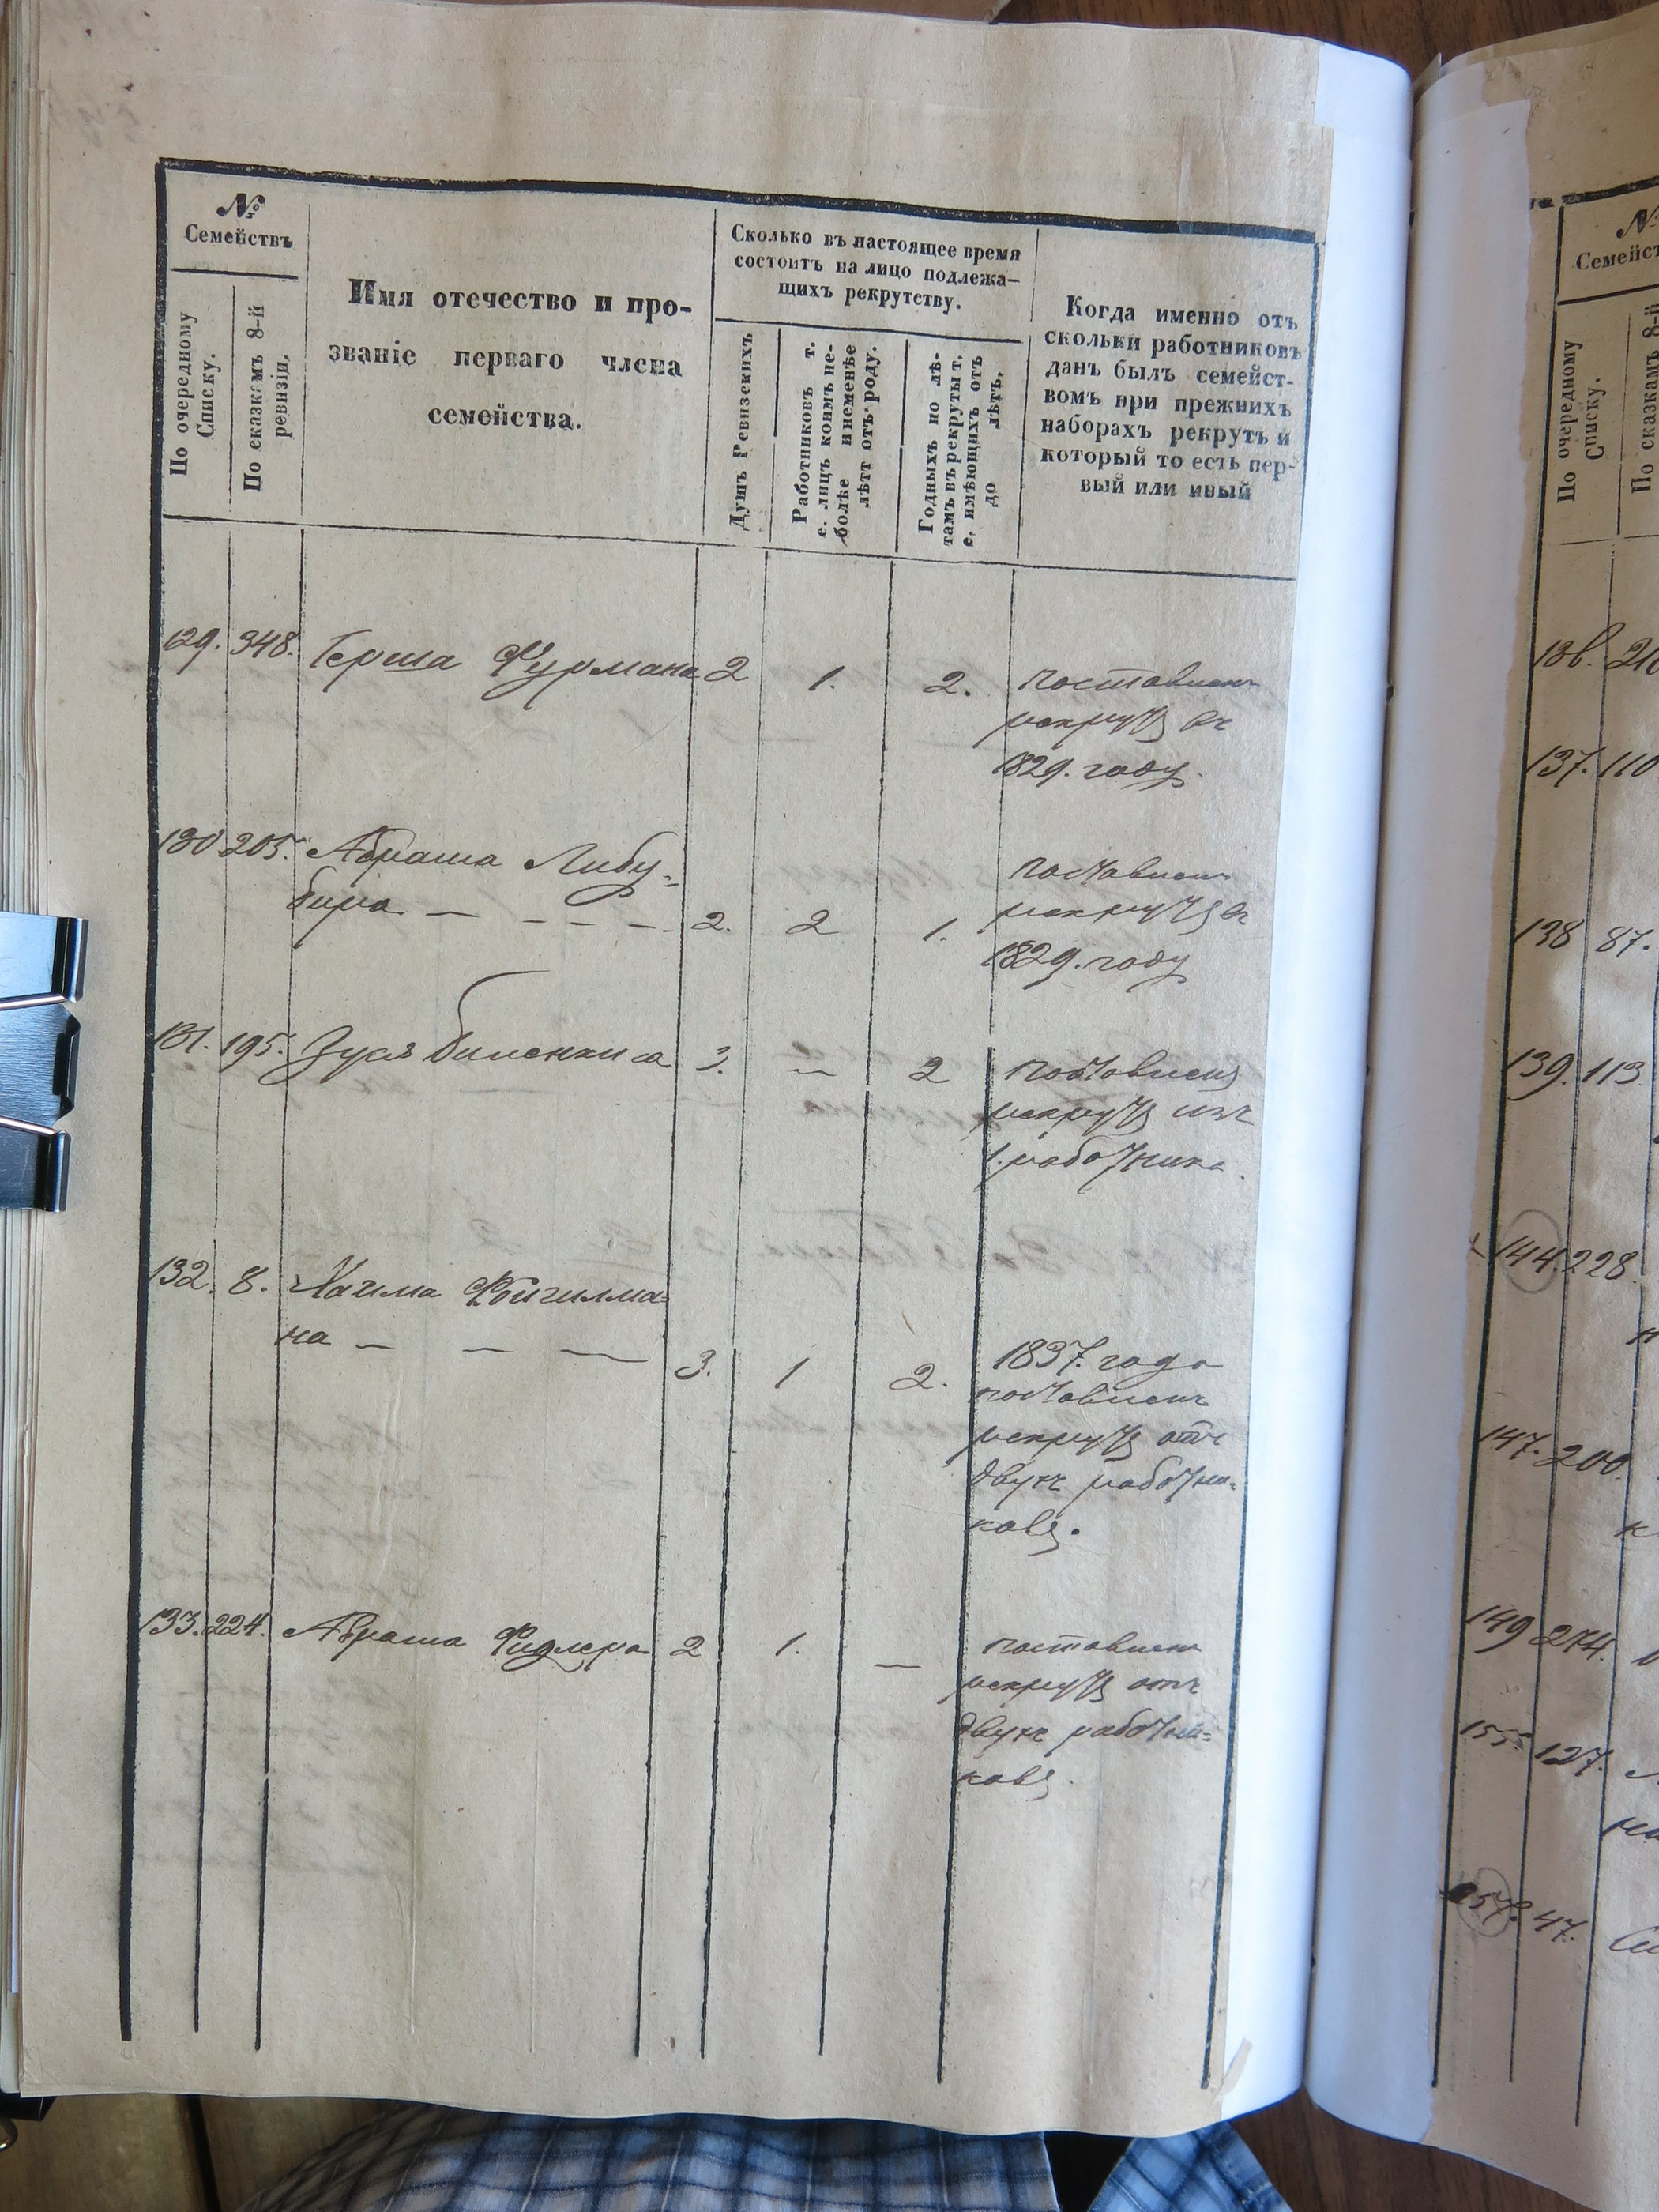 №
Семействъ
По очередному
Списку.
По сказкамъ 8-й
ревизіи.
Имя отечество и про-
званіе перваго члена
семейства.
Сколько въ настоящее время
состоитъ на лицо подлежа-
щихъ рекрутству.
Душъ Ревизскихъ
Работниковъ т.
е. лицъ коимъ не-
болѣе и неменѣе
лѣтъ отъ роду.
Годныхъ по лѣ-
тамъ въ рекруты т.
е. имѣющихъ отъ
до лѣтъ.
Когда именно отъ
скольки работниковъ
данъ былъ семейст-
вомъ при прежнихъ
наборахъ рекрутъ и
который то есть пер-
вый или иный
129. 348. Герша Фурмана 2 1. 2. поставленъ
рекрутъ въ
1829. году.
130 205. Абрама Либу-
бира — — — — 2. 2 1. поставленъ
рекрутъ въ
1829. году
131. 195. Зуся 3. — 2 поставленъ
рекрутъ изъ
1. работника.
132. 8. Хаима Фойгилма-
на — — — 3. 1 2. 1837. года
поставленъ
рекрутъ отъ
двухъ работни-
ковъ.
133. 224. Абрама Фидлера 2 1. — поставленъ
рекрутъ отъ
двухъ работни-
ковъ.
№
Семейст
По очередному
Списку.
По сказкамъ 8-й
136. 210
137. 110
138 87.
139. 113
144. 228.
147. 200.
149 274.
155. 127.
157. 47.